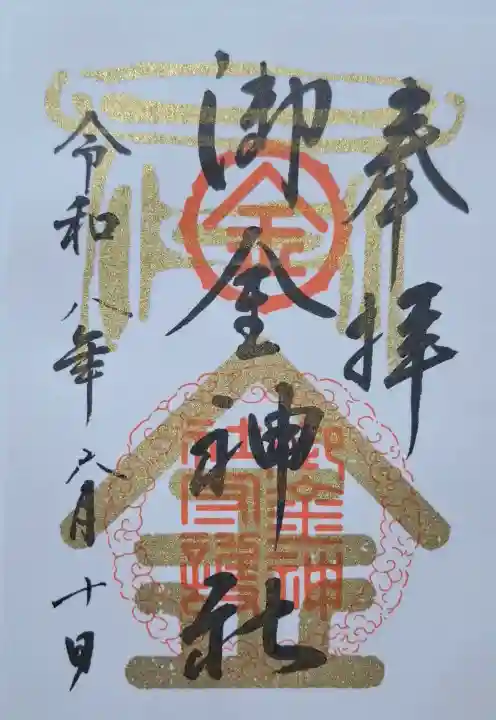 奉拝
御金神社
令和八年六月十日
金
御金神
社